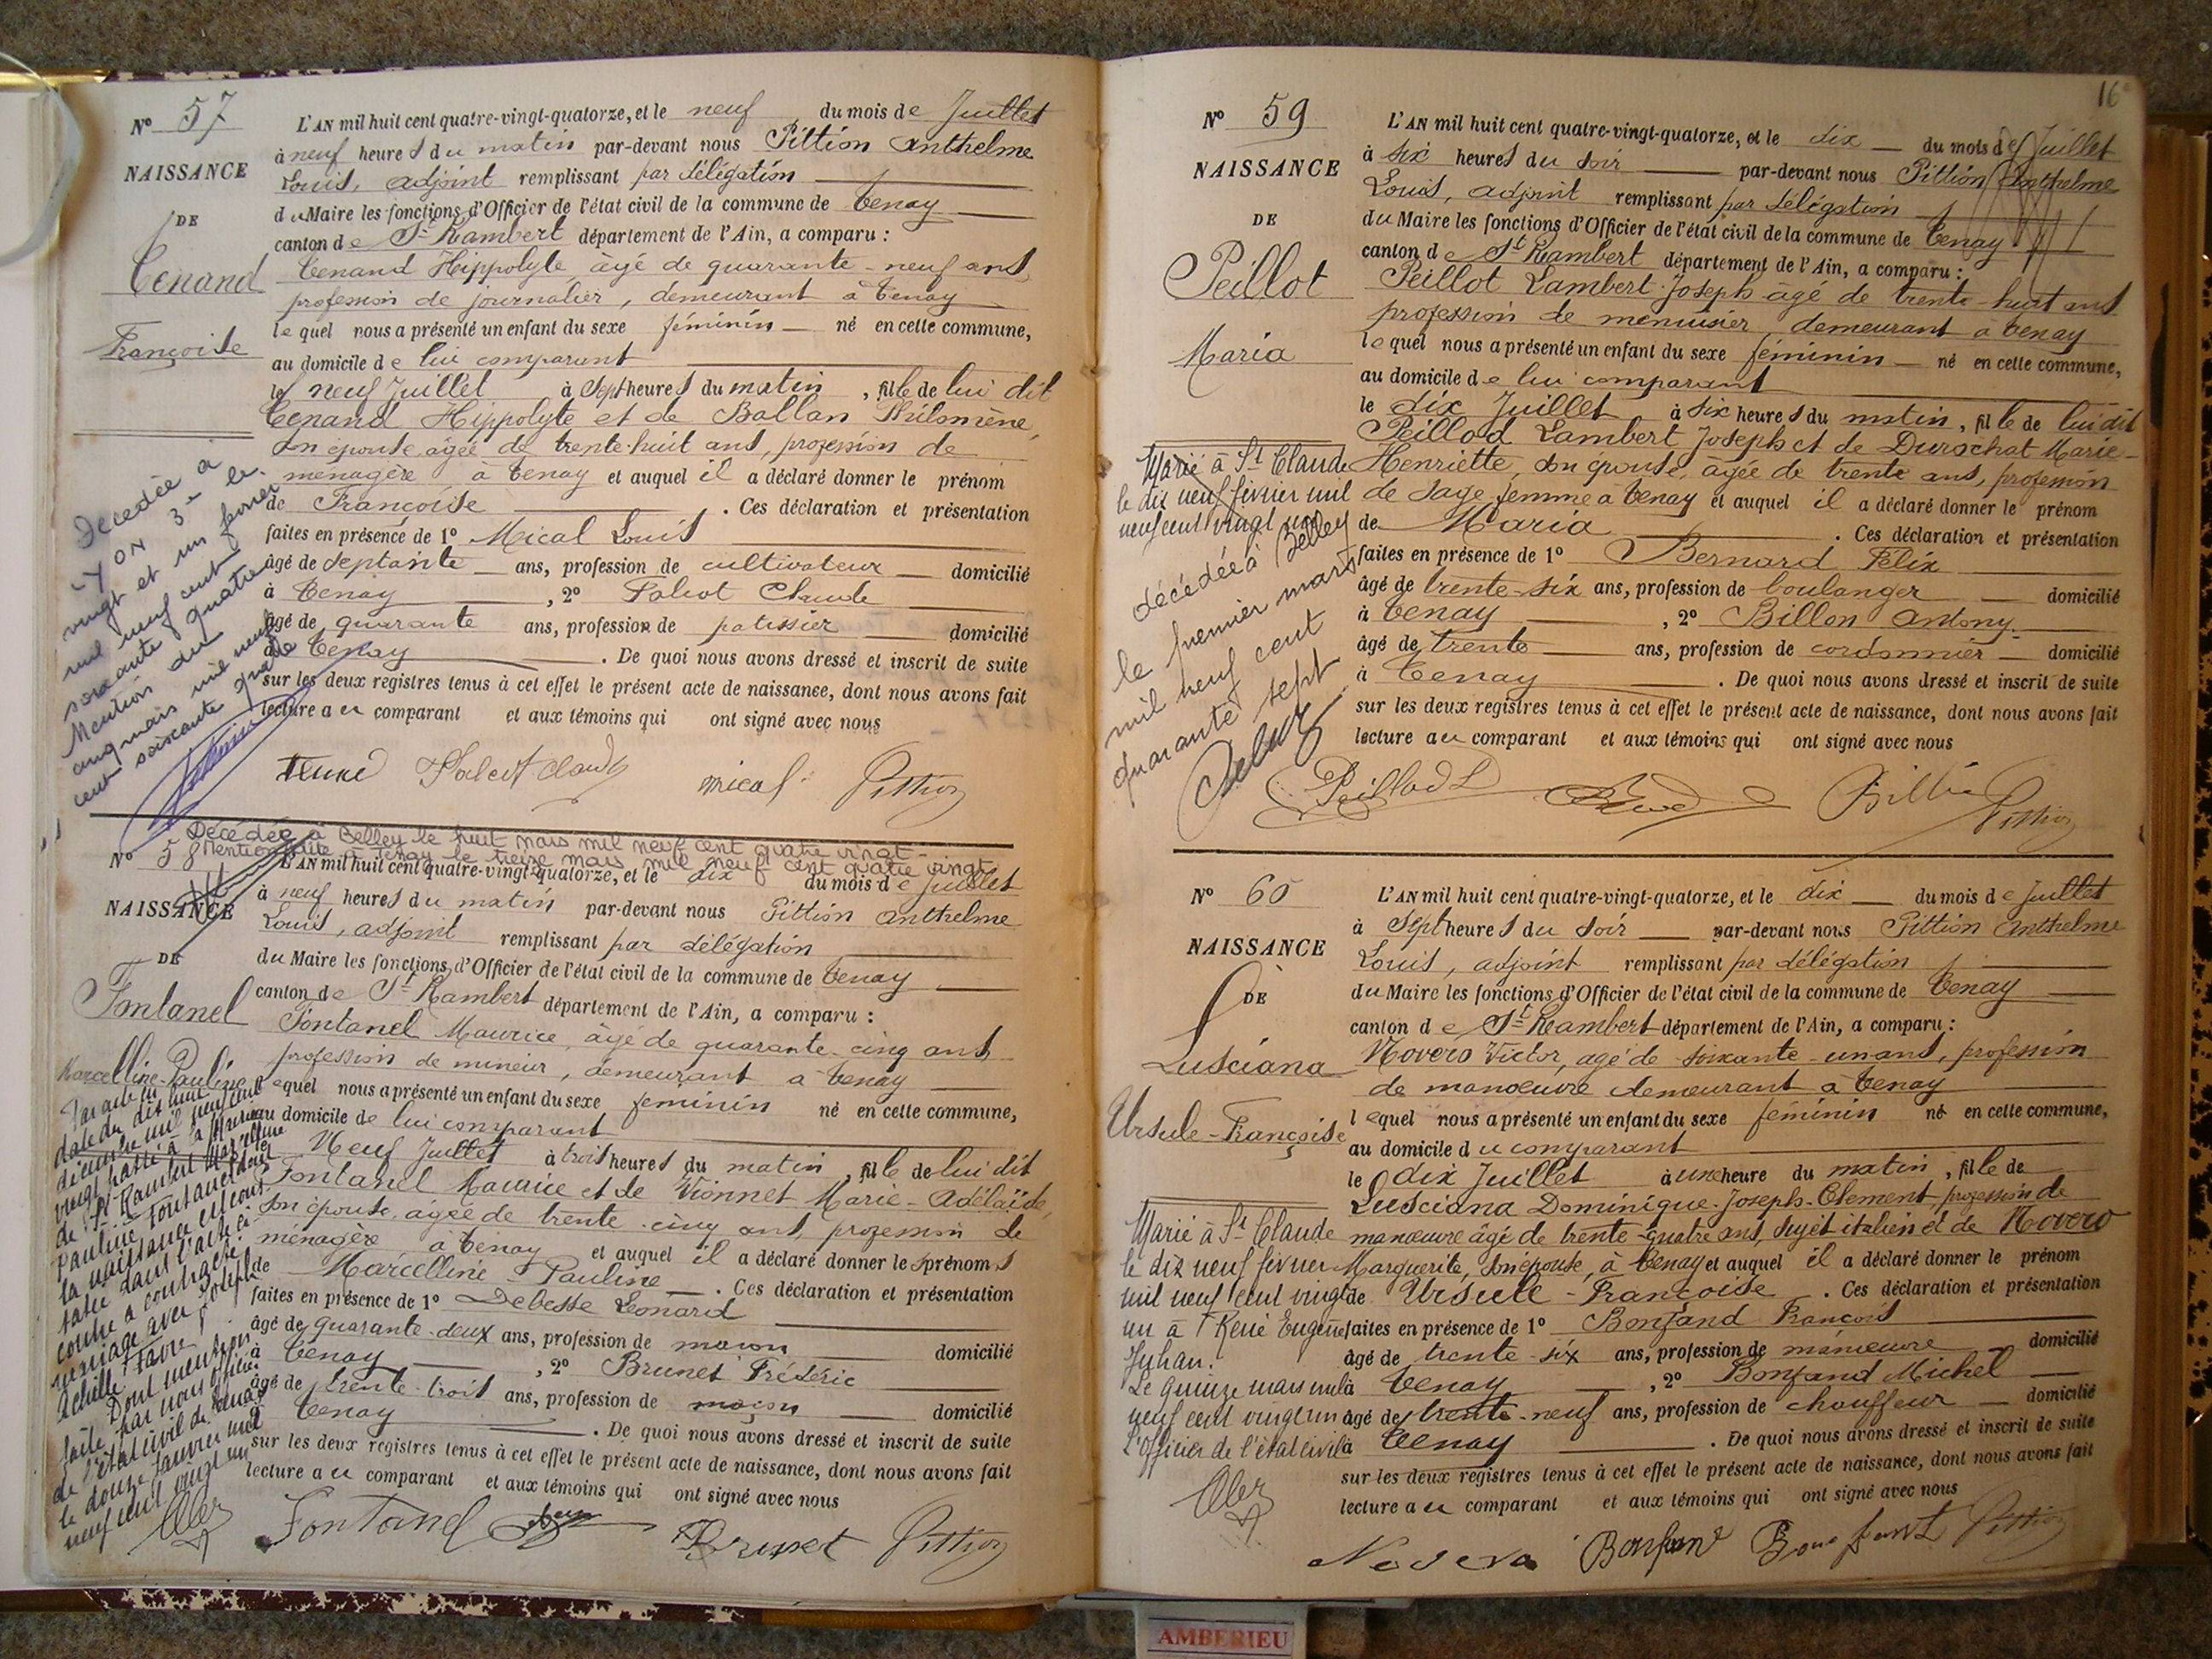 N° 57
NAISSANCE
DE
Tenand
Françoise
L'AN mil huit cent quatre-vingt-quatorze, et le neuf du mois de Juillet
à neuf heures du matin par-devant nous Pittion Anthelme
Louis, adjoint remplissant par délégation
du Maire les fonctions d'Officier de l'état civil de la commune de Tenay
canton de St Rambert département de l'Ain, a comparu :
Tenand Hippolyte âgé de quarante-neuf ans,
profession de journalier, demeurant à Tenay
lequel nous a présenté un enfant du sexe féminin né en cette commune,
au domicile de lui comparant
le neuf Juillet à Sept heures du matin, fille de lui dit
Tenand Hippolyte et de Ballan Philomène,
son épouse âgée de trente-huit ans, profession de
ménagère, à Tenay et auquel il a déclaré donner le prénom
de Françoise. Ces déclaration et présentation
faites en présence de 1° Mical Louis
âgé de septante ans, profession de cultivateur domicilié
à Tenay, 2° Claude
âgé de quarante ans, profession de patissier domicilié
à Tenay. De quoi nous avons dressé et inscrit de suite
sur les deux registres tenus à cet effet le présent acte de naissance, dont nous avons fait
lecture au comparant et aux témoins qui ont signé avec nous
Décédée à
LYON 3e le
vingt et un février
mil neuf cent
soixante quatre
Mention du
cinq mars mil neuf
cent soixante quatre
mical Pittion
Décédée à Belley le huit mars mil neuf cent quatre vingt
Mention faite à Tenay le treize mars mil neuf cent quatre vingt
N° 58
NAISSANCE
DE
Fontanel
Marcelline-Pauline
L'AN mil huit cent quatre-vingt-quatorze, et le dix du mois de Juillet
à neuf heures du matin par-devant nous Pittion Anthelme
Louis, adjoint remplissant par délégation
du Maire les fonctions d'Officier de l'état civil de la commune de Tenay
canton de St Rambert département de l'Ain, a comparu :
Fontanel Maurice, âgé de quarante-cinq ans
profession de mineur, demeurant à Tenay
lequel nous a présenté un enfant du sexe féminin né en cette commune,
au domicile de lui comparant
Neuf Juillet à trois heures du matin, fille de lui dit
Fontanel Maurice et de Vionnet Marie-Adélaïde,
son épouse, âgée de trente-cinq ans, profession de
ménagère à Tenay et auquel il a déclaré donner le prénoms
de Marcelline-Pauline. Ces déclaration et présentation
faites en présence de 1° Debesse Léonard
âgé de quarante-deux ans, profession de maçon domicilié
à Tenay, 2° Brunet Frédéric
âgé de trente-trois ans, profession de maçon domicilié
à Tenay. De quoi nous avons dressé et inscrit de suite
sur les deux registres tenus à cet effet le présent acte de naissance, dont nous avons fait
lecture au comparant et aux témoins qui ont signé avec nous
Par acte en
date du dix huit
décembre mil neuf cent
vingt passé à la Mairie
de St Rambert Marcelline
Pauline Fontanel dont
la naissance est cons
tatée dans l'acte ci-
contre a contracté
mariage avec Joseph
Achille Favre
Dont mention
faite par nous officier
de l'état civil de Tenay
le douze janvier mil
neuf cent vingt un
Fontanel Brunet Pittion
16
N° 59
NAISSANCE
DE
Peillot
Maria
L'AN mil huit cent quatre-vingt-quatorze, et le dix du mois de Juillet
à six heures du soir par-devant nous Pittion Anthelme
Louis, adjoint remplissant par délégation
du Maire les fonctions d'Officier de l'état civil de la commune de Tenay
canton de St Rambert département de l'Ain, a comparu :
Peillot Lambert-Joseph âgé de trente-huit ans
profession de menuisier, demeurant à Tenay
lequel nous a présenté un enfant du sexe féminin né en cette commune,
au domicile de lui comparant
le dix Juillet à six heures du matin, fille de lui dit
Peillod Lambert Joseph et de Durochat Marie-
Henriette, son épouse, âgée de trente ans, profession
de sage-femme à Tenay et auquel il a déclaré donner le prénom
de Maria. Ces déclaration et présentation
faites en présence de 1° Bernard Félix
âgé de trente-six ans, profession de boulanger domicilié
à Tenay, 2° Billon Antony
âgé de trente ans, profession de cordonnier domicilié
à Tenay. De quoi nous avons dressé et inscrit de suite
sur les deux registres tenus à cet effet le présent acte de naissance, dont nous avons fait
lecture au comparant et aux témoins qui ont signé avec nous
Marié à St Claude
le dix neuf février mil
neuf cent vingt un
décédée à Belley
le premier mars
mil neuf cent
quarante sept
Peillod L Pittion
N° 60
NAISSANCE
DE
Lusciana
Ursule-Françoise
L'AN mil huit cent quatre-vingt-quatorze, et le dix du mois de Juillet
à Sept heures du soir par-devant nous Pittion Anthelme
Louis, adjoint remplissant par délégation
du Maire les fonctions d'Officier de l'état civil de la commune de Tenay
canton de St Rambert département de l'Ain, a comparu :
Novero Victor, âgé de soixante-un ans, profession
de manœuvre demeurant à Tenay
lequel nous a présenté un enfant du sexe féminin né en cette commune,
au domicile du comparant
le dix Juillet à une heure du matin, fille de
Lusciana Dominique-Joseph-Clement, profession de
manœuvre âgé de trente-quatre ans, sujet italien et de Novero
Marguerite, son épouse, à Tenay et auquel il a déclaré donner le prénom
de Ursule-Françoise. Ces déclaration et présentation
faites en présence de 1° Bonfand François
âgé de trente-six ans, profession de manœuvre domicilié
à Tenay, 2° Bonfand Michel
âgé de trente-neuf ans, profession de chauffeur domicilié
à Tenay. De quoi nous avons dressé et inscrit de suite
sur les deux registres tenus à cet effet le présent acte de naissance, dont nous avons fait
lecture au comparant et aux témoins qui ont signé avec nous
Marié à St Claude
le dix neuf février
mil neuf cent vingt
un à René Eugène
Juhan.
Le quinze mars mil
neuf cent vingt un
L'officier de l'état civil
Bonfand Pittion
AMBERIEU